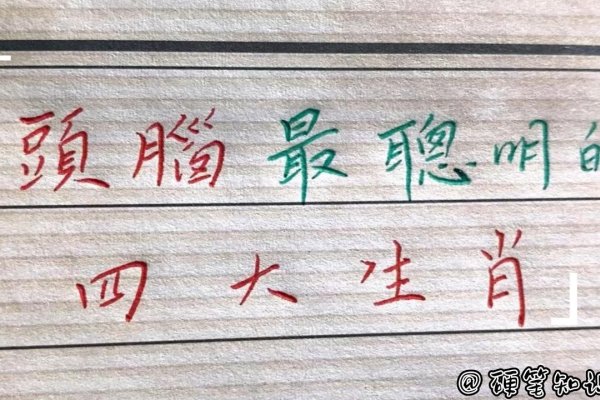 頭腦最聰明的
四大生肖
@硬筆知识